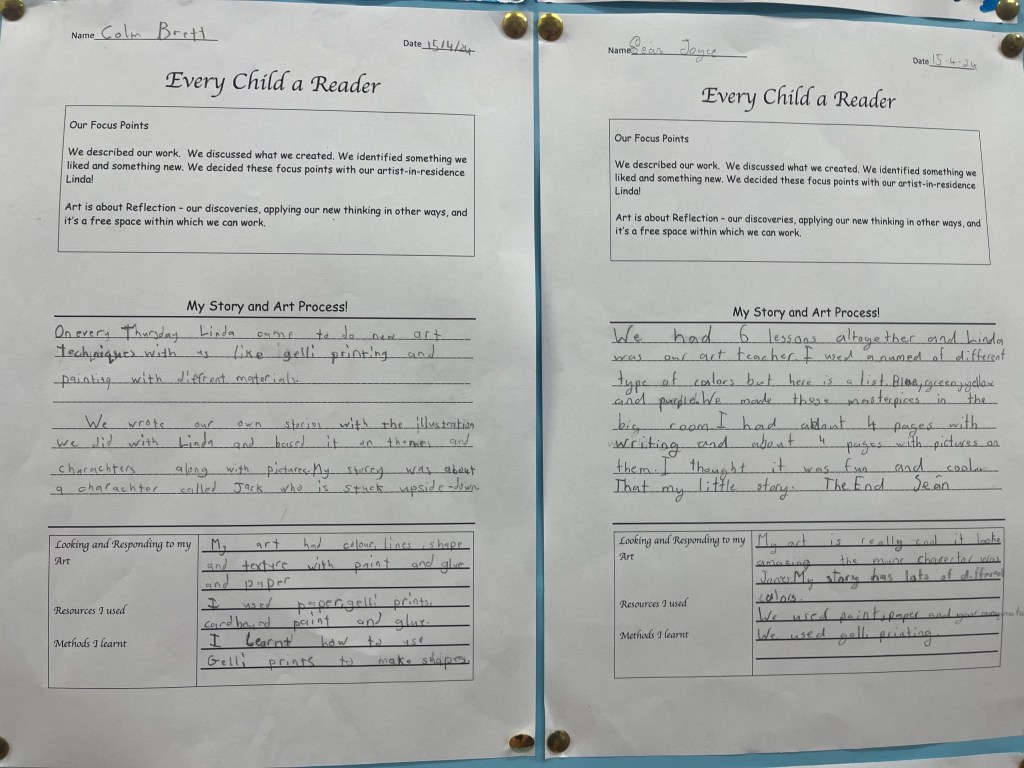 Name Colm Brett
Date 15/4/24
Every Child a Reader
Our Focus Points
We described our work. We discussed what we created. We identified something we
liked and something new. We decided these focus points with our artist-in-residence
Linda!
Art is about Reflection - our discoveries, applying our new thinking in other ways, and
it's a free space within which we can work.
My Story and Art Process!
On every Thursday Linda came to do new art
techniques with us like gelli printing and
painting with diffrent materials.
We wrote our own stories with the illustration
we did with Linda and based it on themes and
charachters along with pictures. My storey was about
a charachter called Jack who is stuck upside-down.
Looking and Responding to my
Art
My art had colour, lines, shape
and texture with paint and glue
and paper
Resources I used
I used paper, gelli prints,
cardboard paint and glue.
Methods I learnt
I learnt how to use
Gelli prints to make shapes.
Name Seán Joyce
Date 15-4-24
Every Child a Reader
Our Focus Points
We described our work. We discussed what we created. We identified something we
liked and something new. We decided these focus points with our artist-in-residence
Linda!
Art is about Reflection - our discoveries, applying our new thinking in other ways, and
it's a free space within which we can work.
My Story and Art Process!
We had 6 lessons altogether and Linda
was our art teacher. I used a numed of different
type of coalors but here is a list. Blue, green, yellow
and purple. We made these masterpices in the
big room. I had about 4 pages with
writing and about 4 pages with pictures on
them. I thought it was fun and cool.
That my little story. The End Seán
Looking and Responding to my
Art
My art is really cool it looks
amazing the mune charector was
My story has lots of different
colors.
Resources I used
We used paint, paper and
Methods I learnt
We used gelli printing.